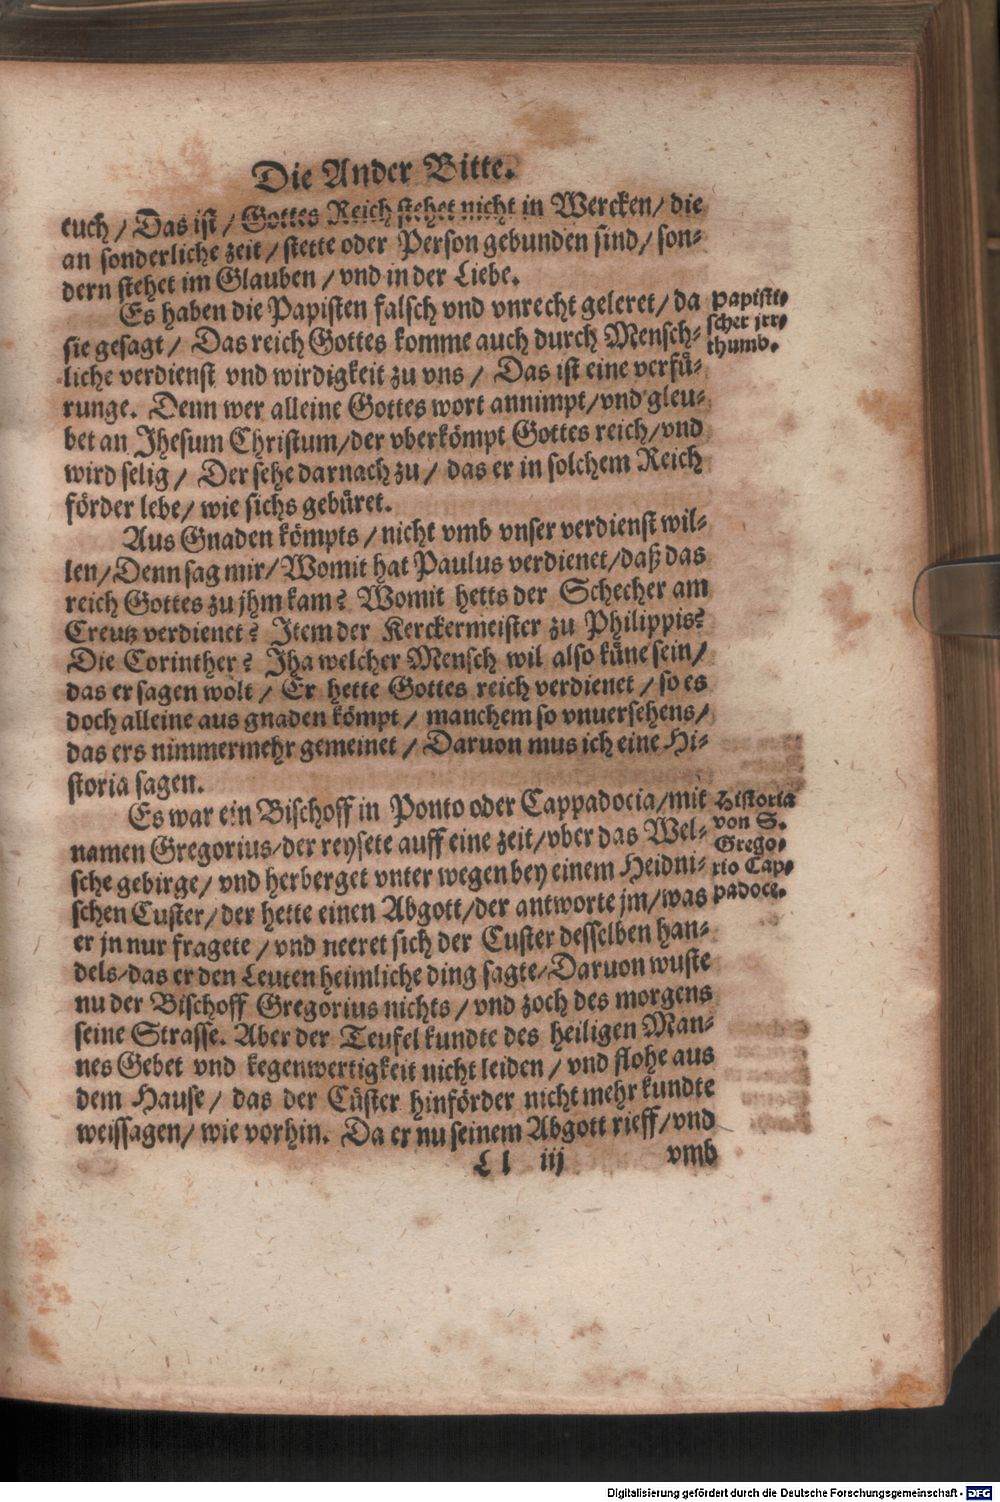 Die Ander Bitte.
euch / Das ist / Gottes Reich stehet nicht in Wercken / die
an sonderliche zeit / stette oder Person gebunden sind / son-
dern stehet im Glauben / vnd in der Liebe.
Es haben die Papisten falsch vnd vnrecht geleret / da
sie gesagt / Das reich Gottes komme auch durch Mensch-
liche verdienst vnd wirdigkeit zu vns / Das ist eine verfü-
runge. Denn wer alleine Gottes wort annimpt / vnd gleu-
bet an Jhesum Christum / der vberkömpt Gottes reich / vnd
wird selig / Der sehe darnach zu / das er in solchem Reich
förder lebe / wie sichs gebüret.
Papisti-
scher jrr-
thumb.
Aus Gnaden kömpts / nicht vmb vnser verdienst wil-
len / Denn sag mir / Womit hat Paulus verdienet / daß das
reich Gottes zu jhm kam? Womit hetts der Schecher am
Creutz verdienet? Item der Kerckermeister zu Philippis?
Die Corinther? Jha welcher Mensch wil also küne sein /
das er sagen wölt / Er hette Gottes reich verdienet / so es
doch alleine aus gnaden kömpt / manchem so vnuersehens /
das ers nimmermehr gemeinet / Daruon mus ich eine Hi-
storia sagen.
Es war ein Bischoff in Ponto oder Cappadocia / mit
namen Gregorius / der reysete auff eine zeit / vber das Wel-
sche gebirge / vnd herberget vnter wegen bey einem Heidni-
schen Custer / der hette einen Abgott / der antworte jm / was
er jn nur fragete / vnd neeret sich der Custer desselben han-
dels / das er den Leuten heimliche ding sagte / Daruon wuste
nu der Bischoff Gregorius nichts / vnd zoch des morgens
seine Strasse. Aber der Teufel kundte des heiligen Man-
nes Gebet vnd kegenwertigkeit nicht leiden / vnd flohe aus
dem Hause / das der Cüster hinförder nicht mehr kundte
weissagen / wie vorhin. Da er nu seinem Abgott rieff / vnd
Historia
von S.
Grego-
rio Cap-
padoce.
Ll iij
vmb
Digitalisierung gefördert durch die Deutsche Forschungsgemeinschaft - DFG